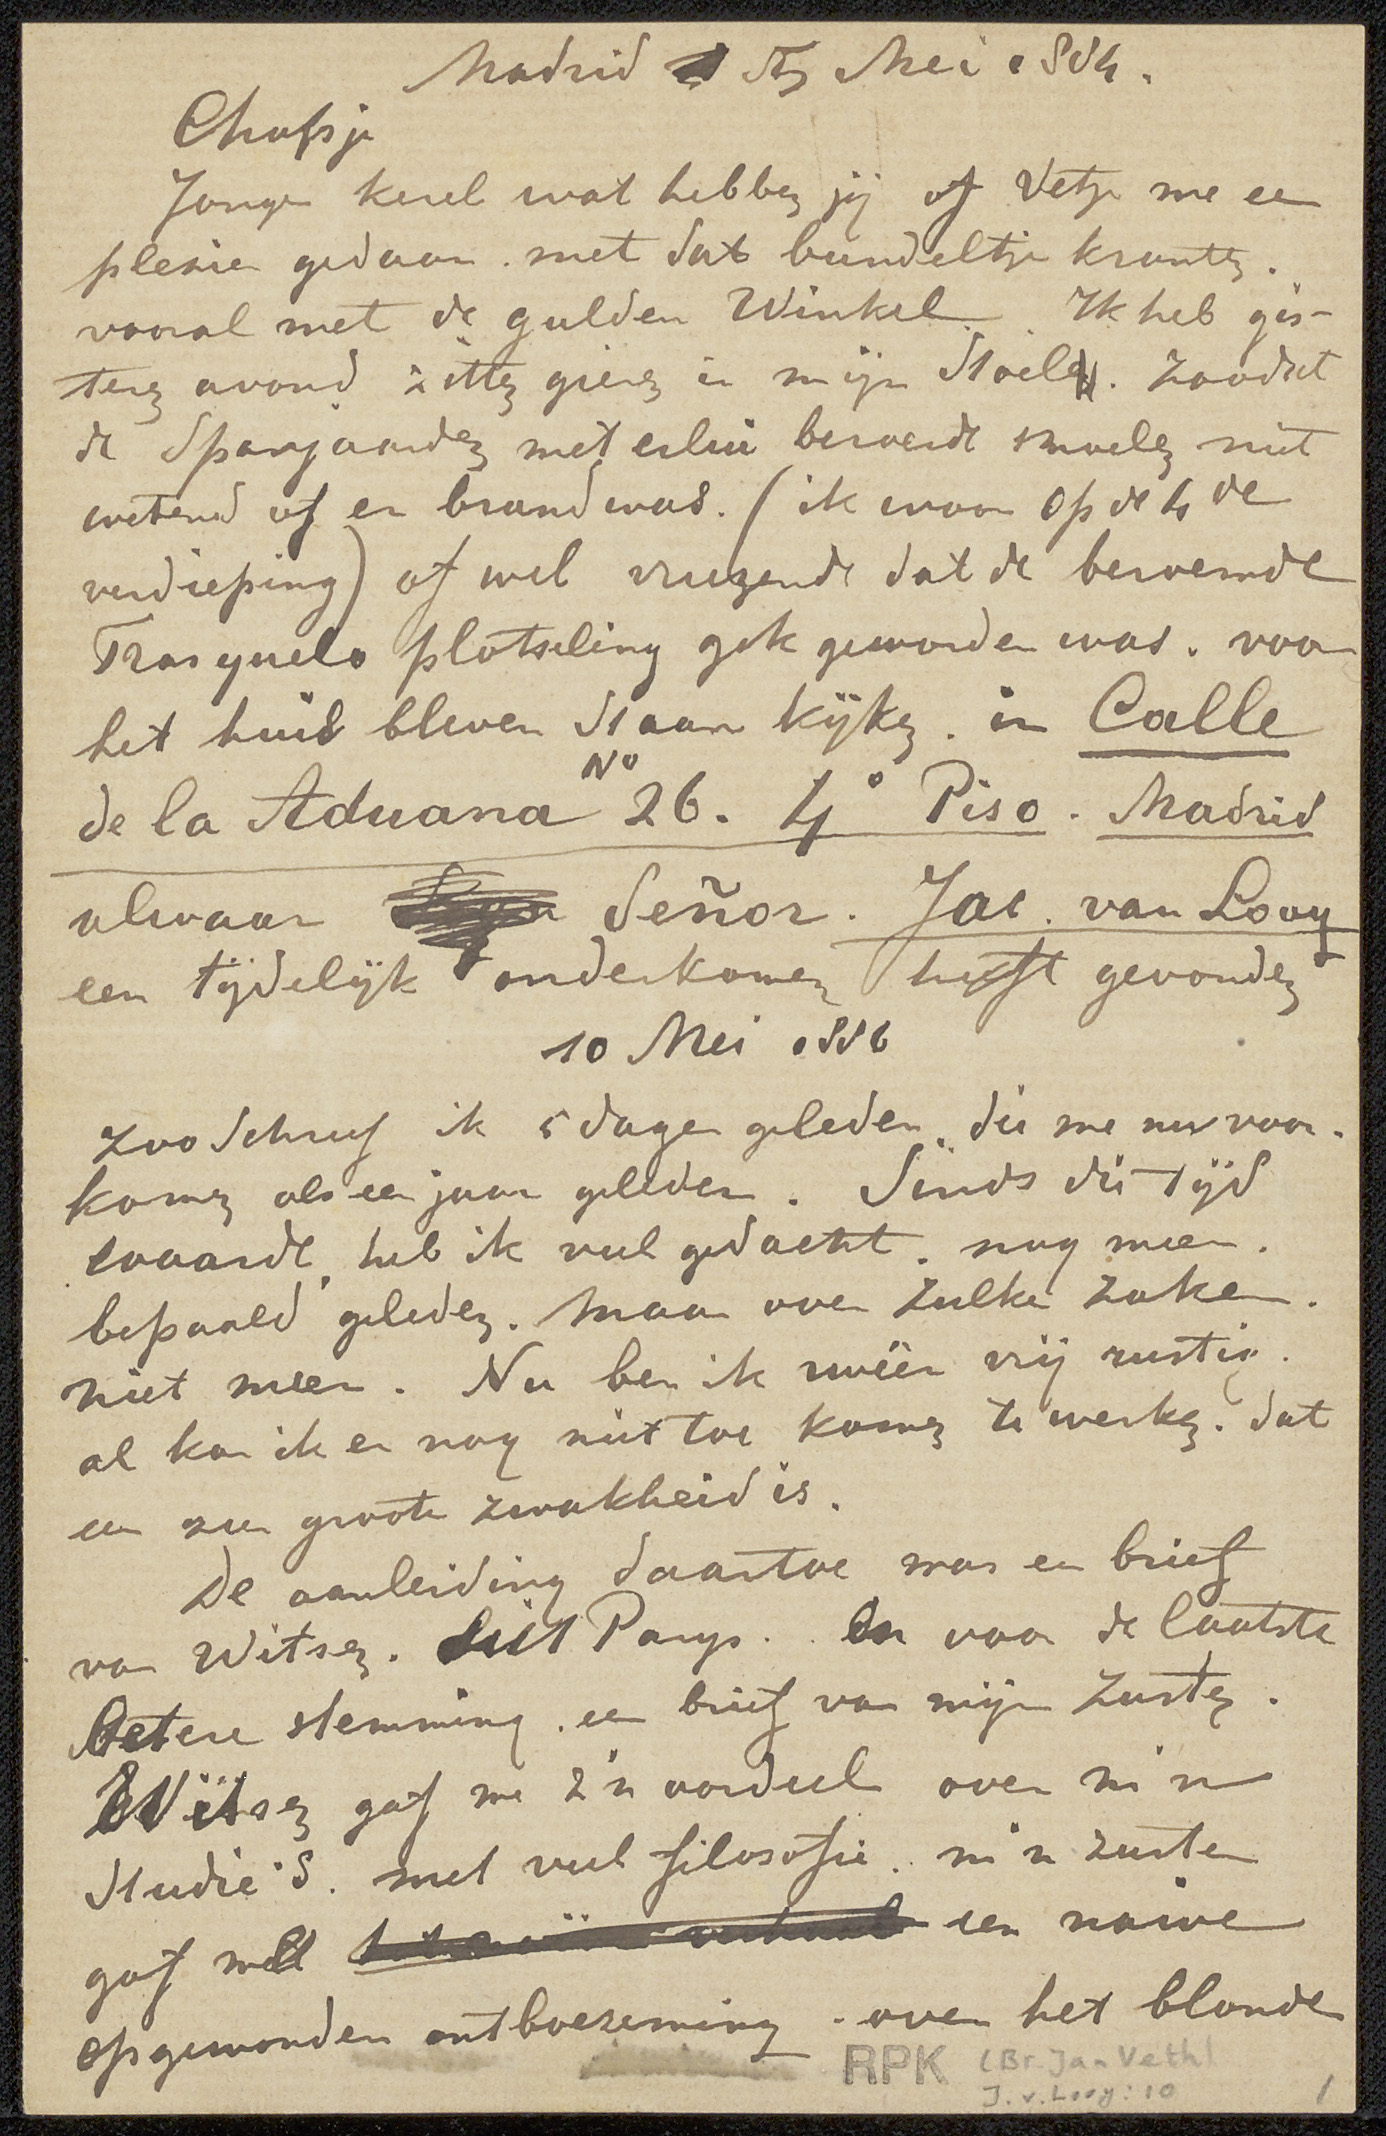 Madrid 5 Mei 1886.
Chapsje
Jonge kerel wat hebben jij of Vetje me een
plesier gedaan. met dat bundeltje kranten.
vooral met de gulden Winkel. Ik heb gis-
teren avond zitten gieren in mijn stoel. Zoodat
de Spanjaarden met beroerde smoelen niet
wetend of er brand was. (ik woon op de 4 de
verdieping) of wel vreezende dat de beroemde
Frasquelo plotseling gek geworden was. voor
het huis bleven staan kijken. in Calle
de la Aduana No 26. 4° Piso. Madrid
alwaar Señor. Jac. van Looy
een tijdelijk onderkomen heeft gevonden
10 Mei 1886
Zoo schreef ik 5 dagen geleden. die me nu voor-
komen als een jaar geleden. Sinds die tijd
heb ik veel gedacht. nog meer.
bepaald geleden. Maar over zulke zaken.
niet meer. Nu ben ik weêr vrij rustig.
al kan ik er nog niet toe komen te werken. dat
een zeer groote zwakheid is.
De aanleiding daartoe was een brief
van Witsen. uit Parijs. En voor de laatste
betere stemming. een brief van mijn zuster.
Witsen gaf me z'n oordeel over m'n
studie's. met veel filosofie. m'n zuster
gaf met een naive
opgewonden ontboezeming. over het blonde
RPK (Br. Jan Veth)
J. v. Looy: 10
1